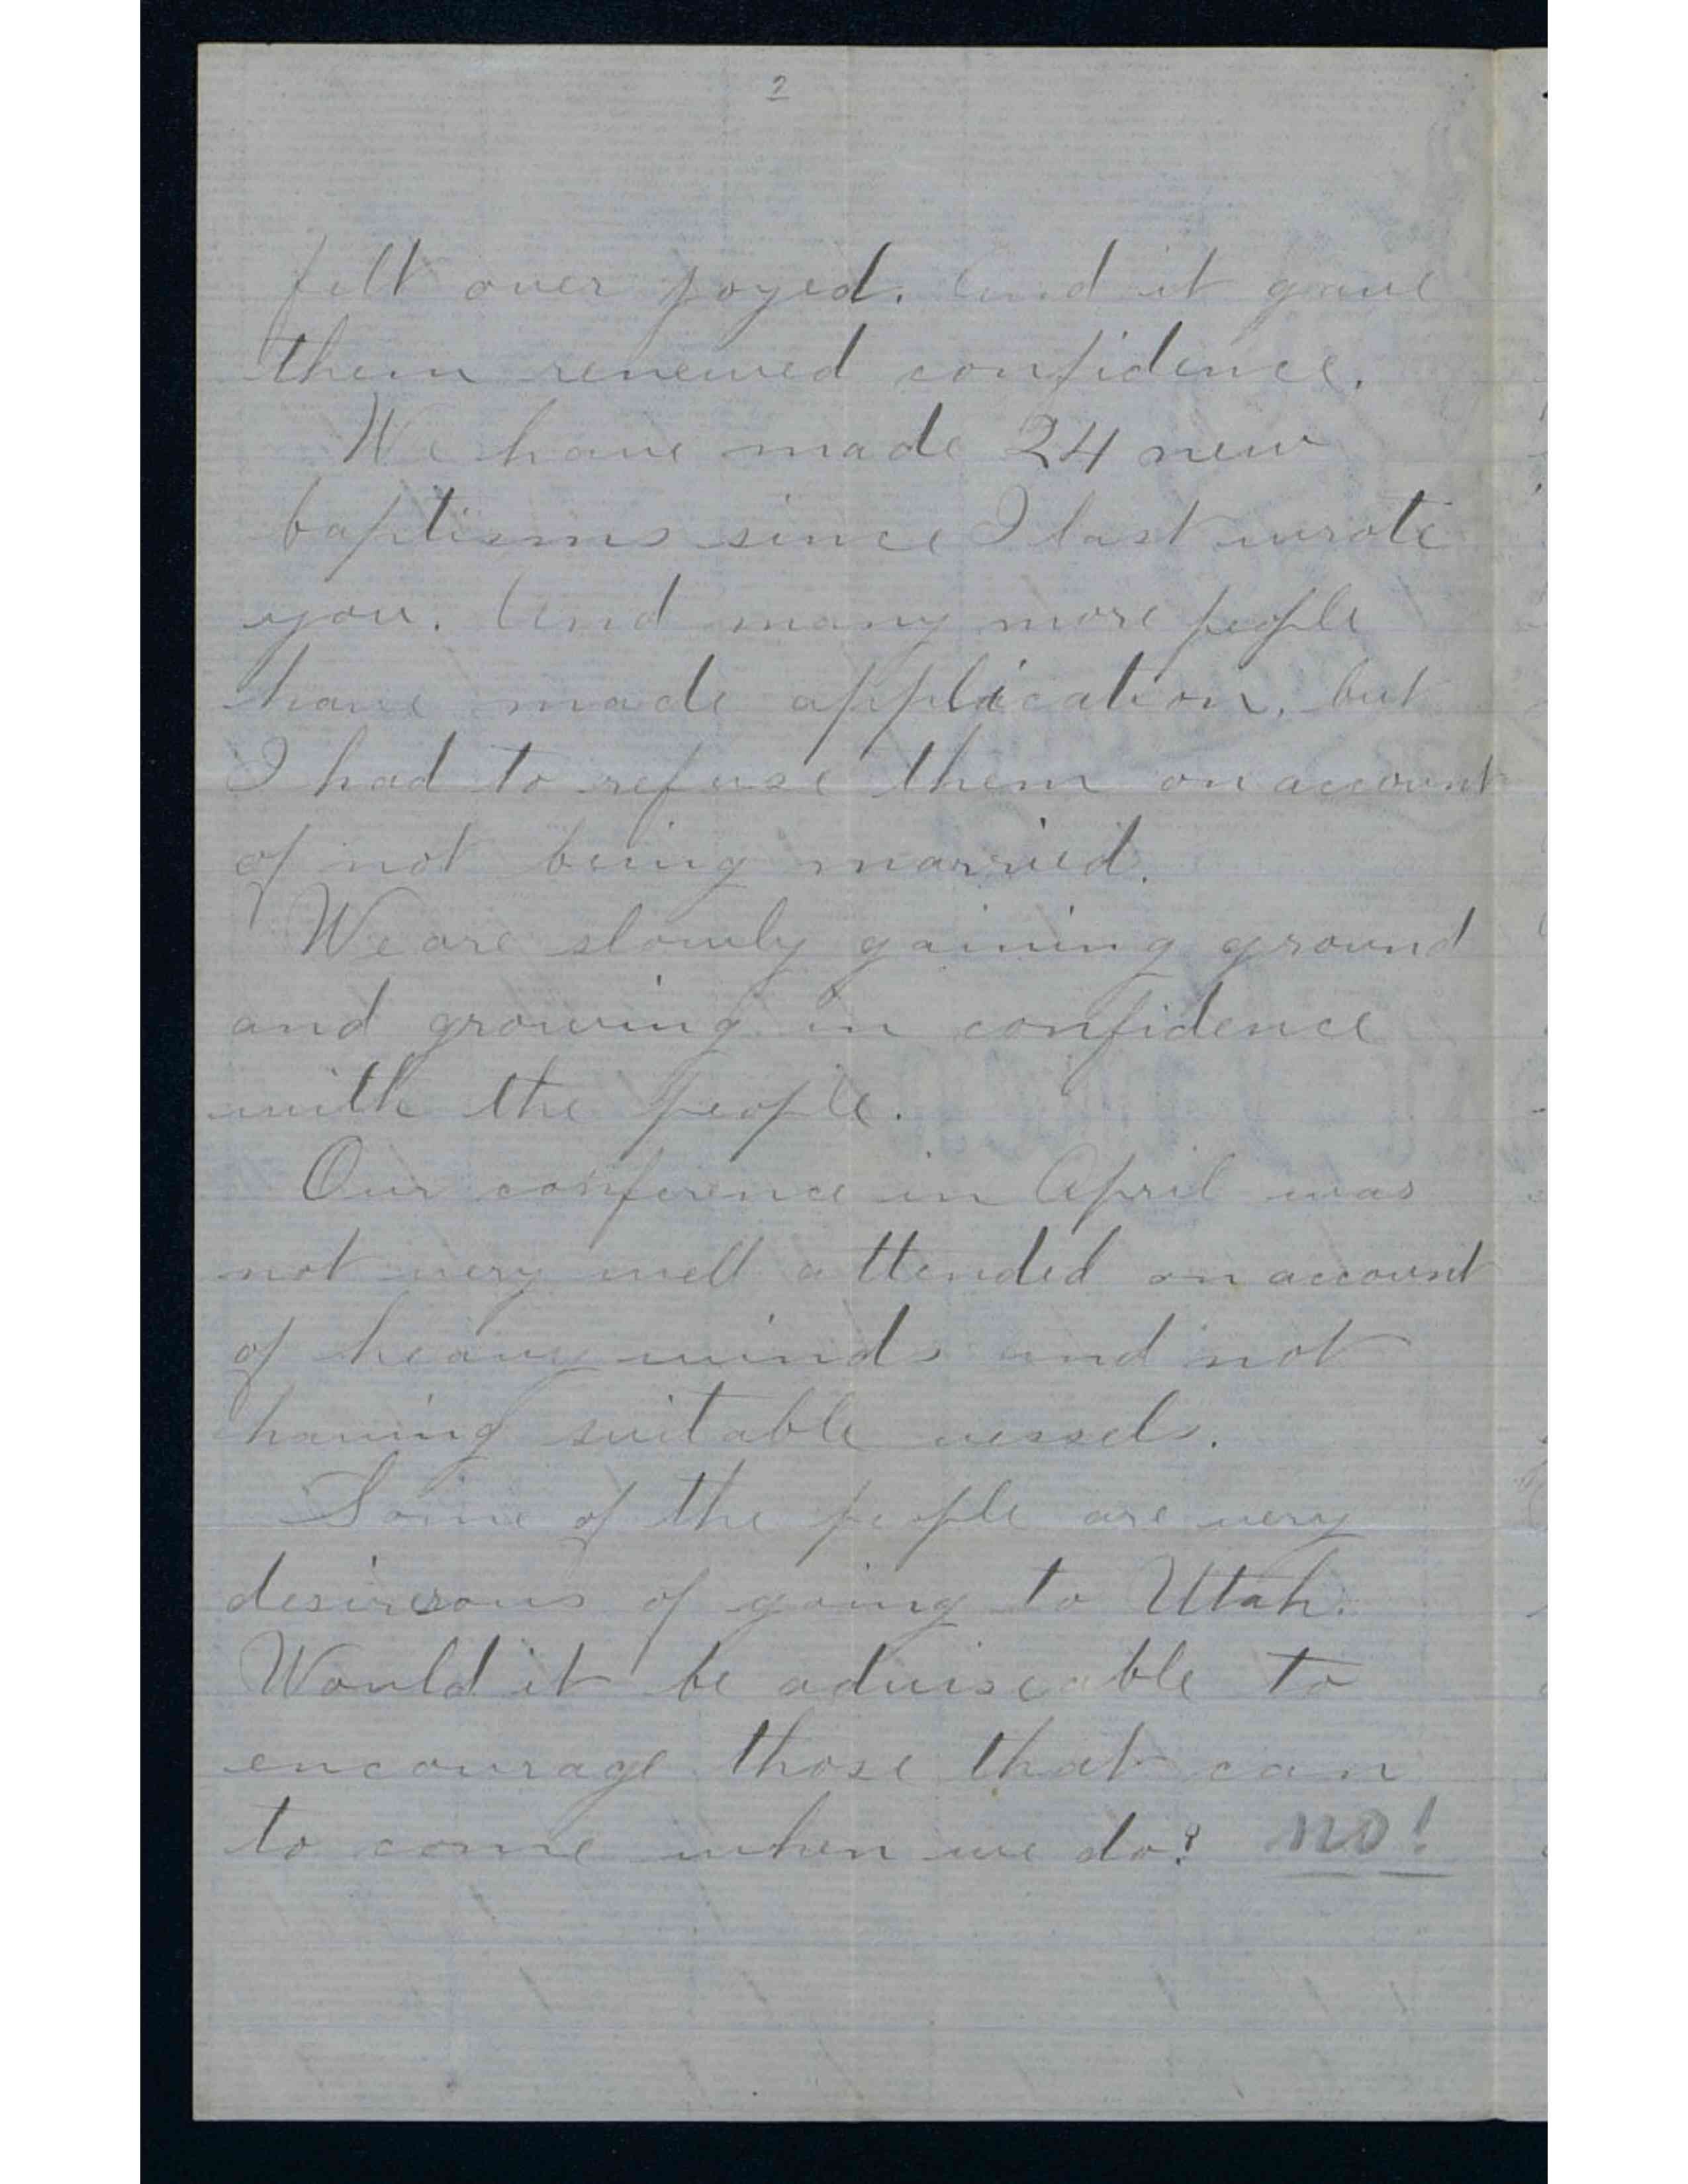 2
felt over joyed. And it gave
them renewed confidence.
We have made 24 new
baptisms since I last wrote
you. And many more people
have made application, but
I had to refuse them on account
of not being married.
We are slowly gaining ground
and growing in confidence
with the people.
Our conference in April was
not very well attended on account
of heavy winds and not
having suitable vessels.
Some of the people are very
desireous of going to Utah.
Would it be adviseable to
encourage those that can
to come when we do? no!